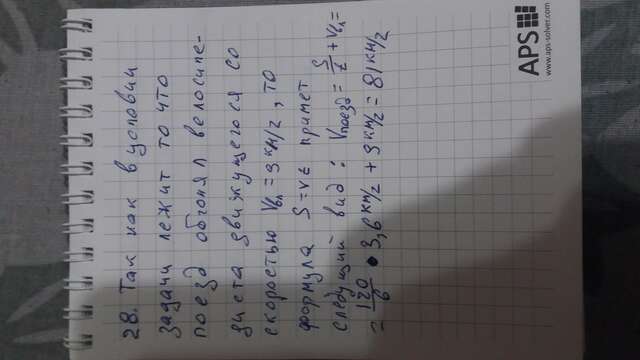 28. Так как в условии
задачи лежит то что
поезд обгонял велосипе-
диста движущегося со
скоростью Vвл = 9 км/г, то
формула S = Vt примет
следующий вид: Vпоезд = S/t + Vвл =
= 120/6 • 3,6 км/г + 9 км/г = 81 км/г
APS
www.aps-solver.com